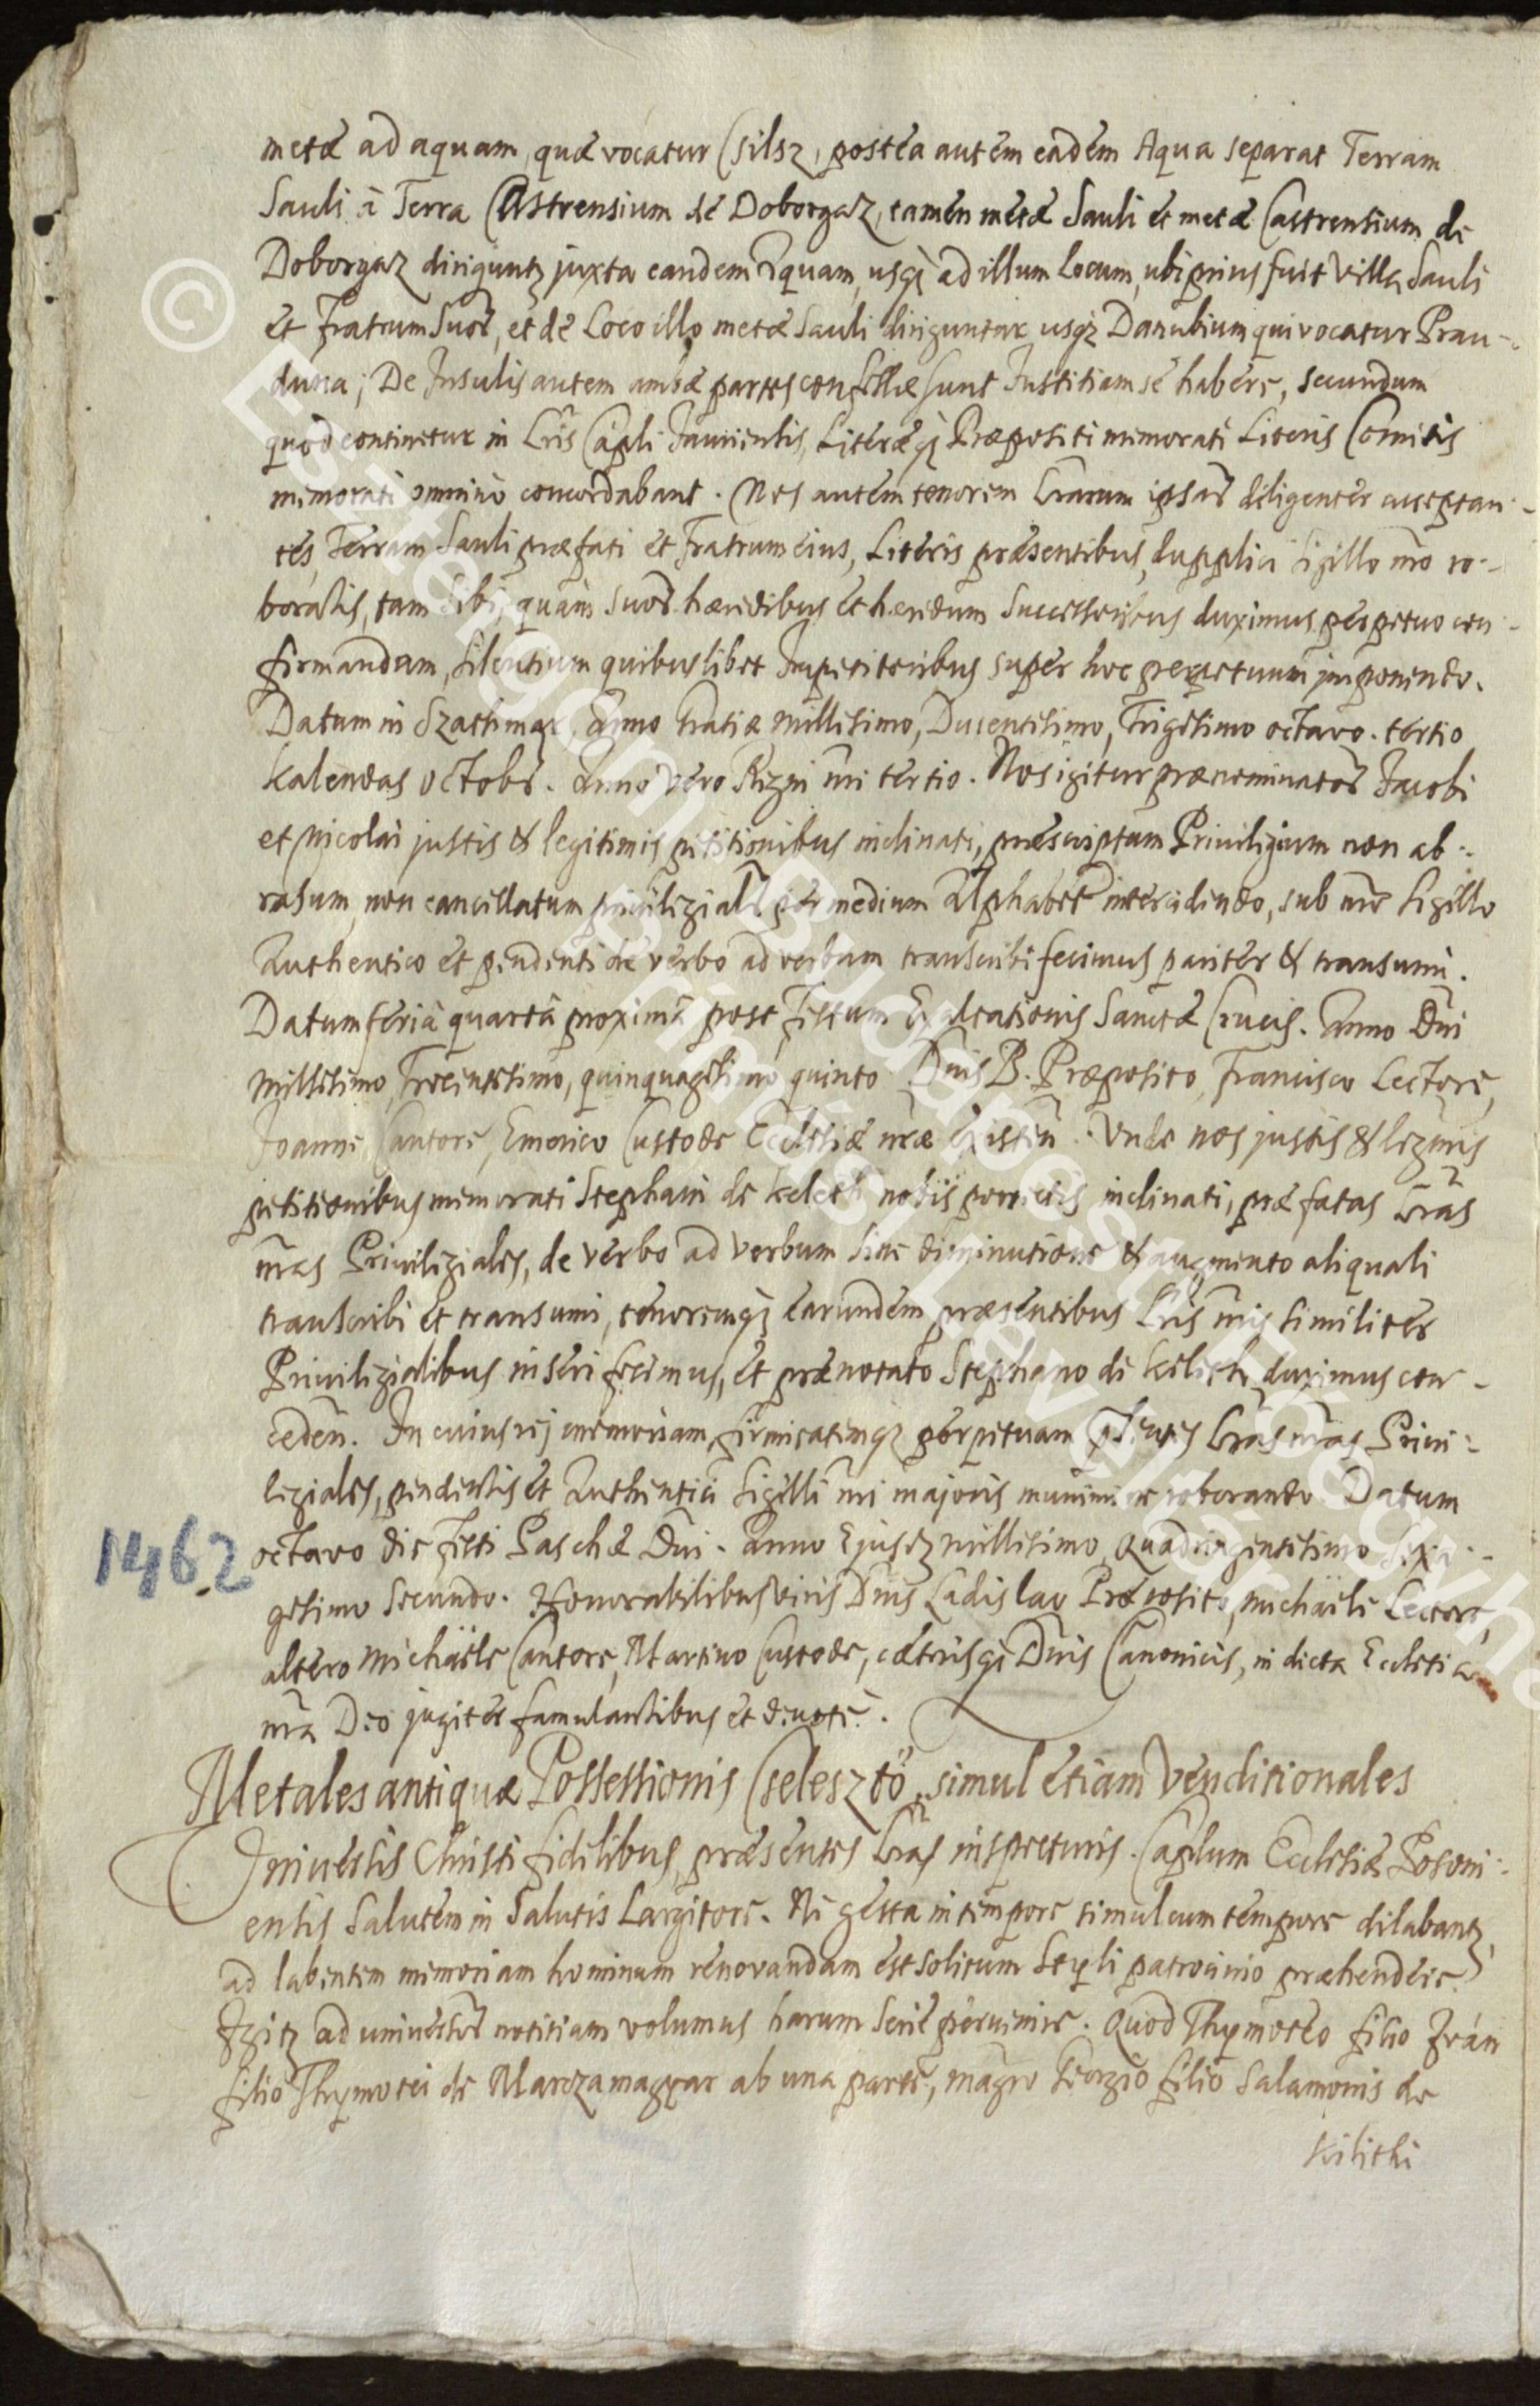 metæ ad aquam, quæ vocatur Csilsz, postea autem eadem Aqua separat Terram
Sauli à Terra Castrensium de Doborgaz, tamen metæ Sauli et metæ Castrensium de
Doborgaz diriguntz juxta eandem Aquam, usq; ad illum Locum, ubi prius fuit Villa Sauli
et Fratrum Suor, et de Loco illo metæ Sauli diriguntur usqz Danubium qui vocatur Prau-
duna; De Insulis autem ambæ partes confessæ sunt Justitiam se habere, secundum
quod continetur in Lris Capli Jauriensis, Literæq; Præpositi memorati Literis Comitis
memorati omnino concordabant. Nos autem tenorem Lrarum ipsar diligenter acceptan-
tes, Terram Sauli præfati et Fratrum eius, Literis præsentibus, dupplici Sigillo nro ro-
boratis, tam sibi, quam suor hæredibus et hæredum Successoribus duximus perpetuo con-
firmandam, silentium quibuslibet Impetitoribus super hoc perpetuum imponendo.
Datum in Szathmar, Anno Gratiæ Millesimo, Ducentesimo, Trigesimo octavo. tertio
Kalendas Octobr. Anno vero Regni nri tertio. Nos igitur prænominator Jacobi
et Nicolai justis & legitimis petitionibus inclinati, præscriptum Privilegium non ab-
rasum, non cancellatum privilegialr per medium Alphabet intercidendo, sub nro Sigillo
Authentico et pendenti de verbo ad verbum transcribi fecimus pariter & transumi.
Datum feria quarta proxima post Festum Exaltationis Sanctæ Crucis. Anno Dni
Millesimo, Trecentesimo, quinquagesimo quinto Dnis B. Præposito, Francisco Lectore,
Joanne Cantore, Emerico Custode Ecclesiæ nræ Existen. Unde nos justis & legmis
petitionibus memorati Stephani de Keleth nobis porrectis inclinati, præfatas Lras
nras Privilegiales, de verbo ad verbum sine diminutione & augmento aliquali
transcribi et transumi, tenoremq; earundem præsentibus Lris nris similiter
Privilegialibus inseri fecimus, et prænotato Stephano de Kelith duximus con-
ceden. In cuius rej memoriam, firmitatemqz perpetuam Lras nras Privi-
legiales, pendentis et Authentici Sigilli nri majoris munimine roborando Datum
1462 octavo die Festi Paschæ Dni. Anno Ejusdz Millesimo, Quadringentesimo Sexa-
gesimo Secundo. Honorabilibus viris Dnis Ladislao Præposito, Michaële Lectore,
altero Michaële Cantore, Martino Custode, cæterisq; Dnis Canonicis, in dicta Ecclesia
nra Deo jugiter famulantibus et devote.
Metales antiquæ Possessionis Cselesztö, simul etiam Venditionales
Universis Christi fidelibus præsentes Lras inspecturis. Caplum Ecclesiæ Posoni-
ensis Salutem in Salutis Largitore. Ne gesta in tempore simul cum tempore dilabantz,
ad labentem memoriam hominum renovandam est solitum patrocinio præhendere
Igitz ad universor notitiam volumus harum serie pervenire. Quod Thymoteo filio Irán
filio Thymotei de Marczamagyar ab una parte, magro Georgio filio Salamonis de
Kilithi
© Esztergom-Budapesti Főegyhá
Prímási Levéltár